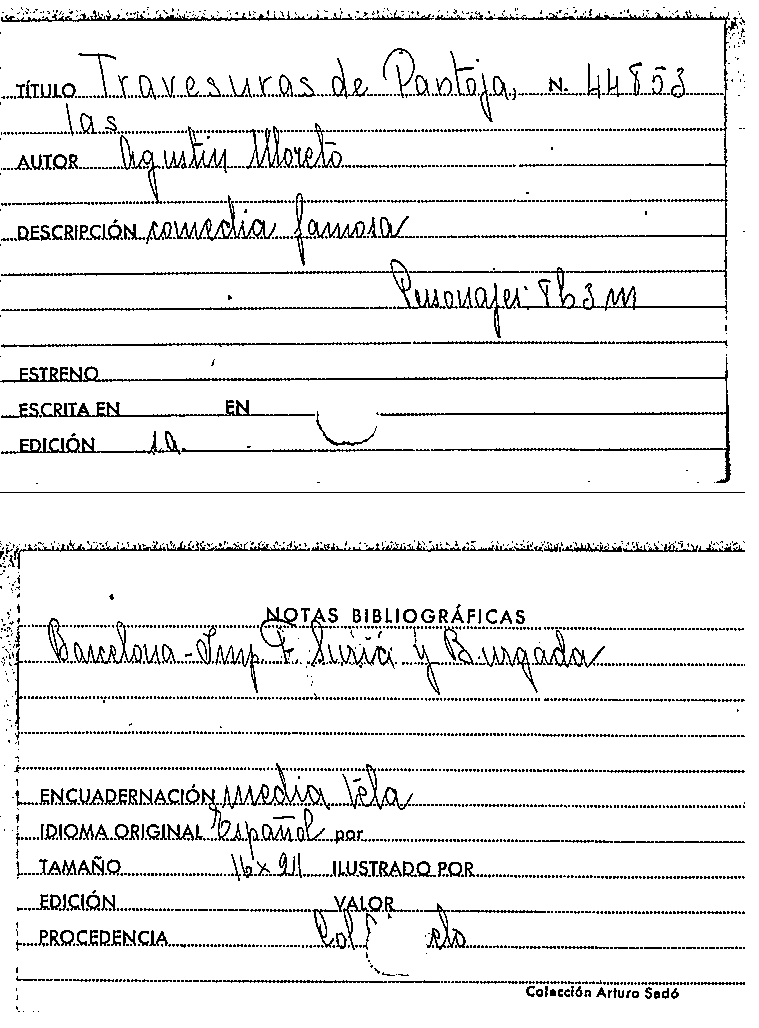 TÍTULO Travesuras de Pantoja, N. 44853
las
AUTOR Agustin Moreto
DESCRIPCIÓN comedia famosa
Personajes: 8h3m
ESTRENO
ESCRITA EN EN
EDICIÓN 1a.
NOTAS BIBLIOGRÁFICAS
Barcelona-Imp F. Suriá y Burgada
ENCUADERNACIÓN media tela
IDIOMA ORIGINAL Español por
TAMAÑO 16x21 ILUSTRADO POR
EDICIÓN VALOR
PROCEDENCIA Col
Colección Arturo Sedó